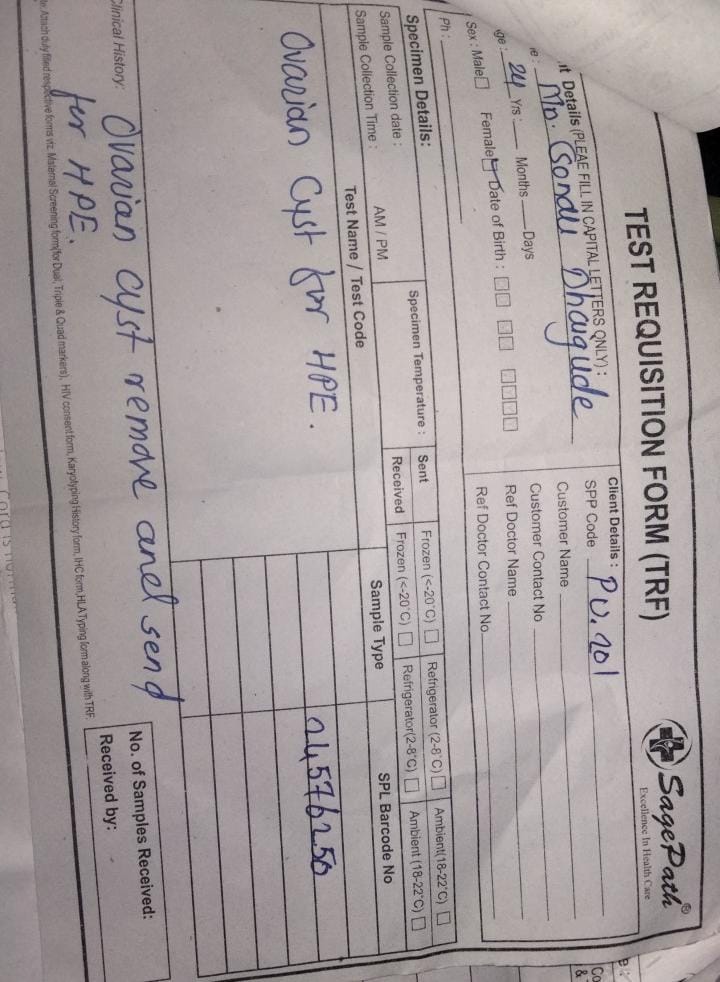 TEST REQUISITION FORM (TRF)
SagePath®
Excellence In Health Care
nt Details (PLEAE FILL IN CAPITAL LETTERS ONLY) :
e : Mn. Gondu Dhaigude
ge : 24 Yrs : Months Days
Sex : Male Female Date of Birth :
Ph :
Client Details :
SPP Code PU.201
Customer Name
Customer Contact No
Ref Doctor Name
Ref Doctor Contact No
Specimen Details:
Sample Collection date :
Sample Collection Time : AM / PM
Specimen Temperature :
Sent Frozen (<-20°C) Refrigerator (2-8°C) Ambient(18-22°C)
Received Frozen (<-20°C) Refrigerator(2-8°C) Ambient (18-22°C)
Test Name / Test Code Sample Type SPL Barcode No
Ovarian Cyst for HPE. 24576250
Clinical History: Ovarian cyst remove and send
for HPE.
No. of Samples Received:
Received by:
te: Attach duly filled respective forms viz. Maternal Screening form(for Dual, Triple & Quad markers), HIV consent form, Karyotyping History form, IHC form, HLA Typing form along with TRF.